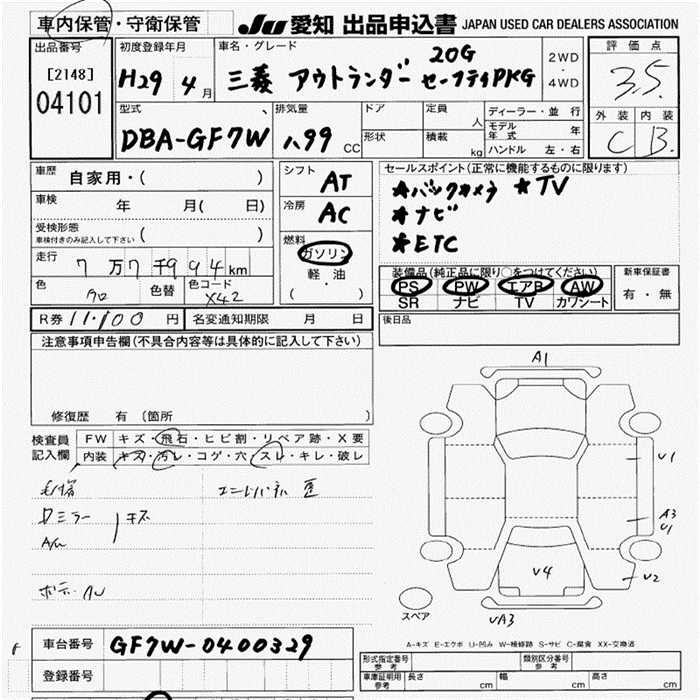 車内保管・守衛保管 JU 愛知 出品申込書 JAPAN USED CAR DEALERS ASSOCIATION
出品番号 初度登録年月 車名・グレード 評価点
[2148] 04101 H29 4月 三菱 アウトランダー 20G セーフティPKG 2WD・4WD 3.5
外装 内装
C B
型式 排気量 ドア 定員 人 ディーラー・並行
DBA-GF7W 1.99 CC 形状 積載 kg モデル年式 年
ハンドル 左・右
車歴 自家用・( )
車検 年 月( 日)
受検形態 ( )
車検付きのみ記入して下さい
走行 7万7千994km
色 クロ 色替 色コード X42
シフト AT
冷房 AC
燃料 ガソリン
軽・油
( ・ )
セールスポイント(正常に機能するものに限ります)
★バックカメラ ★TV
★ナビ
★ETC
装備品(純正品に限り○をつけてください) 新車保証書
PS PW エアB AW
SR ナビ TV カワシート 有・無
R券 11,100円 名変通知期限 月 日
後日品
注意事項申告欄(不具合内容等は具体的に記入して下さい)
修復歴 有(箇所
検査員記入欄 FW キズ・飛石・ヒビ割・リペア跡・X要
内装 キズ・汚レ・コゲ・穴・スレ・キレ・破レ
ミラー キズ
A1
V1
A3
V1
V4
V2
VA3
スペア
A-キズ E-エクボ U-凹み W-補修跡 S-サビ C-腐食 XX-交換済
車台番号 GF7W-0400329
登録番号
形式指定番号 参考 類別区分番号 参考
車庫証明用 参考 長さ cm 幅 cm 高さ cm